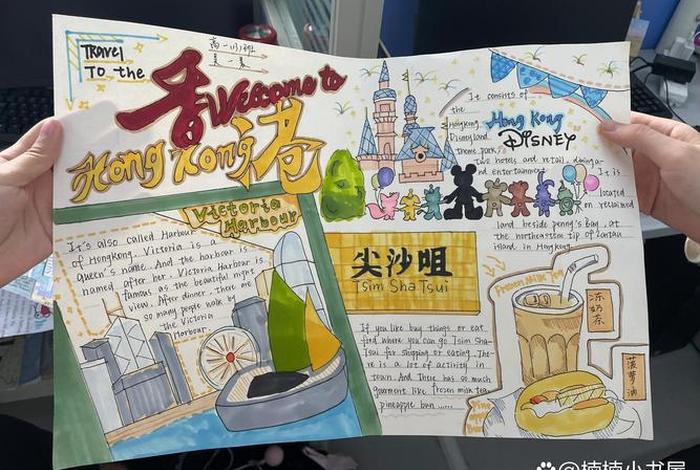 TRAVEL
TO the
香港
Welcome to
Hong Kong
Victoria
Harbour
It's also called Harbour
of HongKong. Victoria is a
queen's name. And the harbour is
named after her. Victoria Harbour is
famous as the beautiful night
view. After dinner, there are
so many people walk by
the Victoria
Harbour.
It consists of
the
HongKong
Disneyland
theme park,
Hong Kong
DISNEY
two hotels and retail, dining a-
nd entertainment. It is
located
on reclaimed
land beside penny's Bay, at
the northeastern tip of Lantau
island in Hongkong.
尖沙咀
Tsim Sha Tsui
If you like buy things or eat
food where you can go Tsim Sha-
Tsui for shopping or eating. The-
re is a lot of activity in
town. And There has so much
garment like frozen milk tea,
pineapple bun......
Frozen Milk Tea
冻奶茶
菠萝油
楠楠小书屋